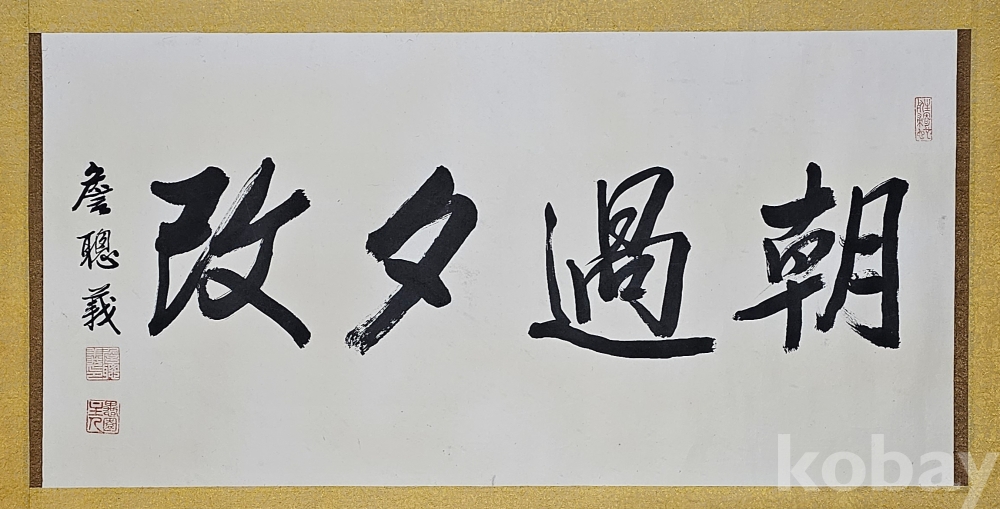 朝過夕改
詹聰義
kobay